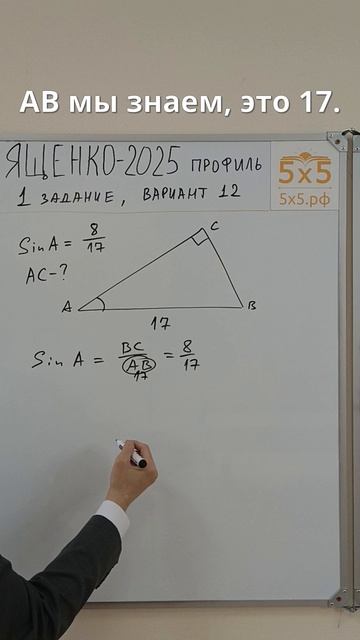 АВ мы знаем, это 17.
ЯЩЕНКО-2025 ПРОФИЛЬ
5х5
1 ЗАДАНИЕ, ВАРИАНТ 12
5х5.рф
Sin A = 8/17
AC-?
C
A
B
17
Sin A = BC/AB = 8/17
17